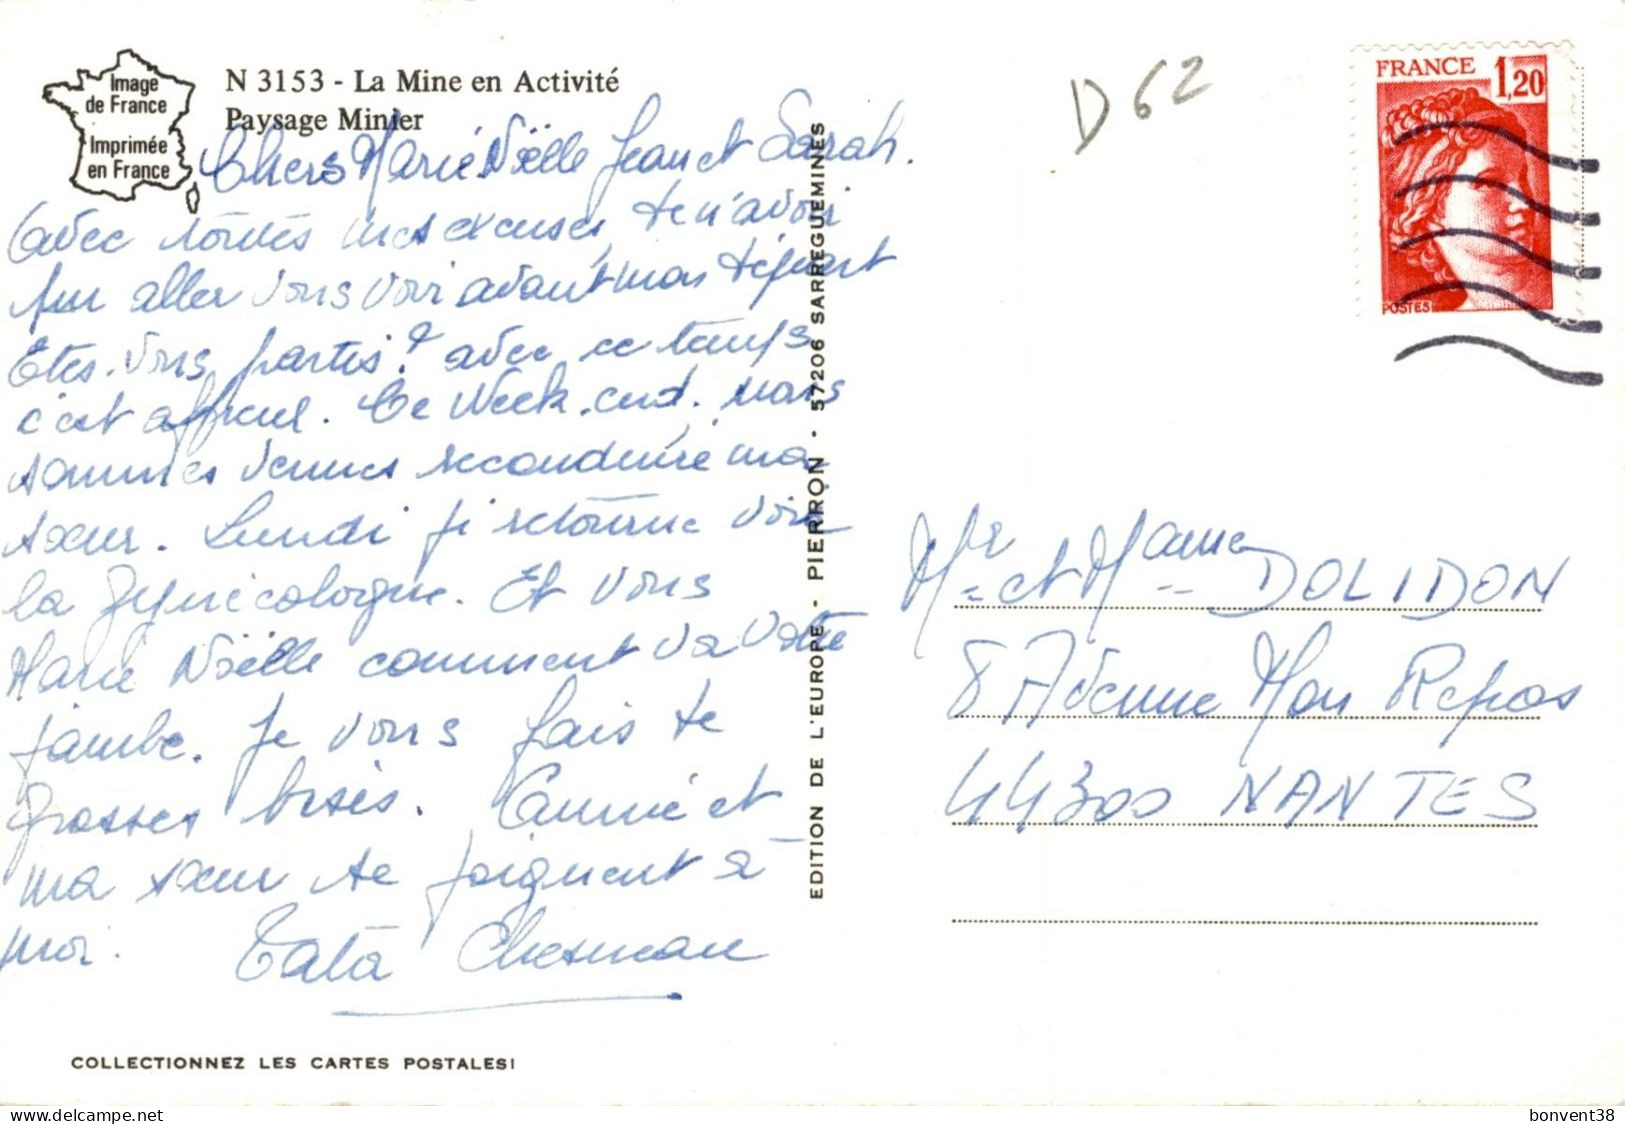 Image
de France
Imprimée
en France
N 3153 - La Mine en Activité
Paysage Minier
Chers Marie Noëlle Jean et Sarah.
Avec toutes mes excuses, de n'avoir
pu aller vous voir avant mon départ
Êtes-vous partis? avec ce temps
c'est affreux. Ce Week-end. nous
sommes venues reconduire ma
sœur. Lundi je retourne voir
la gynécologue. Et vous
Marie Noëlle comment va votre
jambe. Je vous fais de
grosses bises. Annie et
ma sœur se joignent à
moi. Tata
COLLECTIONNEZ LES CARTES POSTALES!
EDITION DE L'EUROPE - PIERRON - 57206 SARREGUEMINES
D 62
FRANCE 1,20
POSTES
Mr et Mame DOLIDON
8 Avenue Mon Repos
44300 NANTES
bonvent38